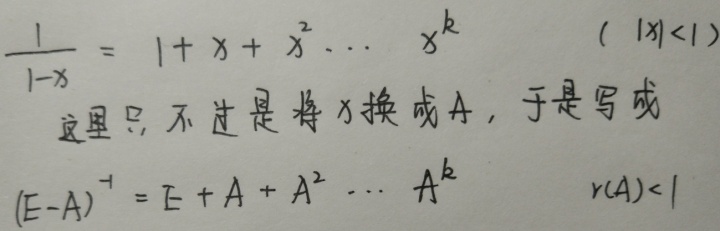 1/(1-x) = 1 + x + x² ... x^k (|x|<1)
这里只不过是将x换成A，于是写成
(E-A)⁻¹ = E + A + A² ... A^k r(A)<1